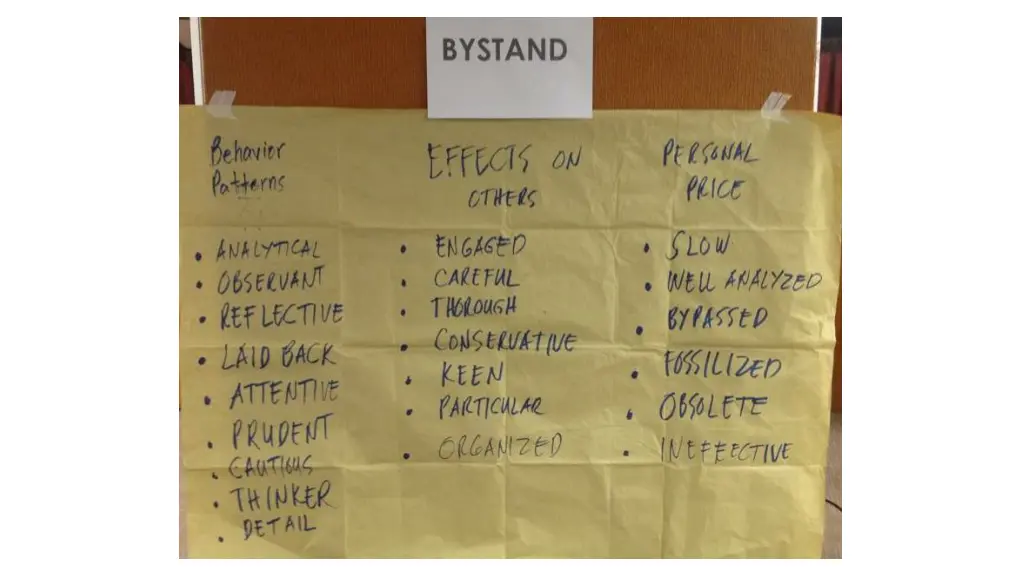 BYSTAND
Behavior
Patterns
• ANALYTICAL
• OBSERVANT
• REFLECTIVE
• LAID BACK
• ATTENTIVE
• PRUDENT
• CAUTIOUS
• THINKER
• DETAIL
EFFECTS ON
OTHERS
• ENGAGED
• CAREFUL
• THOROUGH
• CONSERVATIVE
• KEEN
• PARTICULAR
• ORGANIZED
PERSONAL
PRICE
• SLOW
• WELL ANALYZED
• BYPASSED
• FOSSILIZED
• OBSOLETE
• INEFFECTIVE